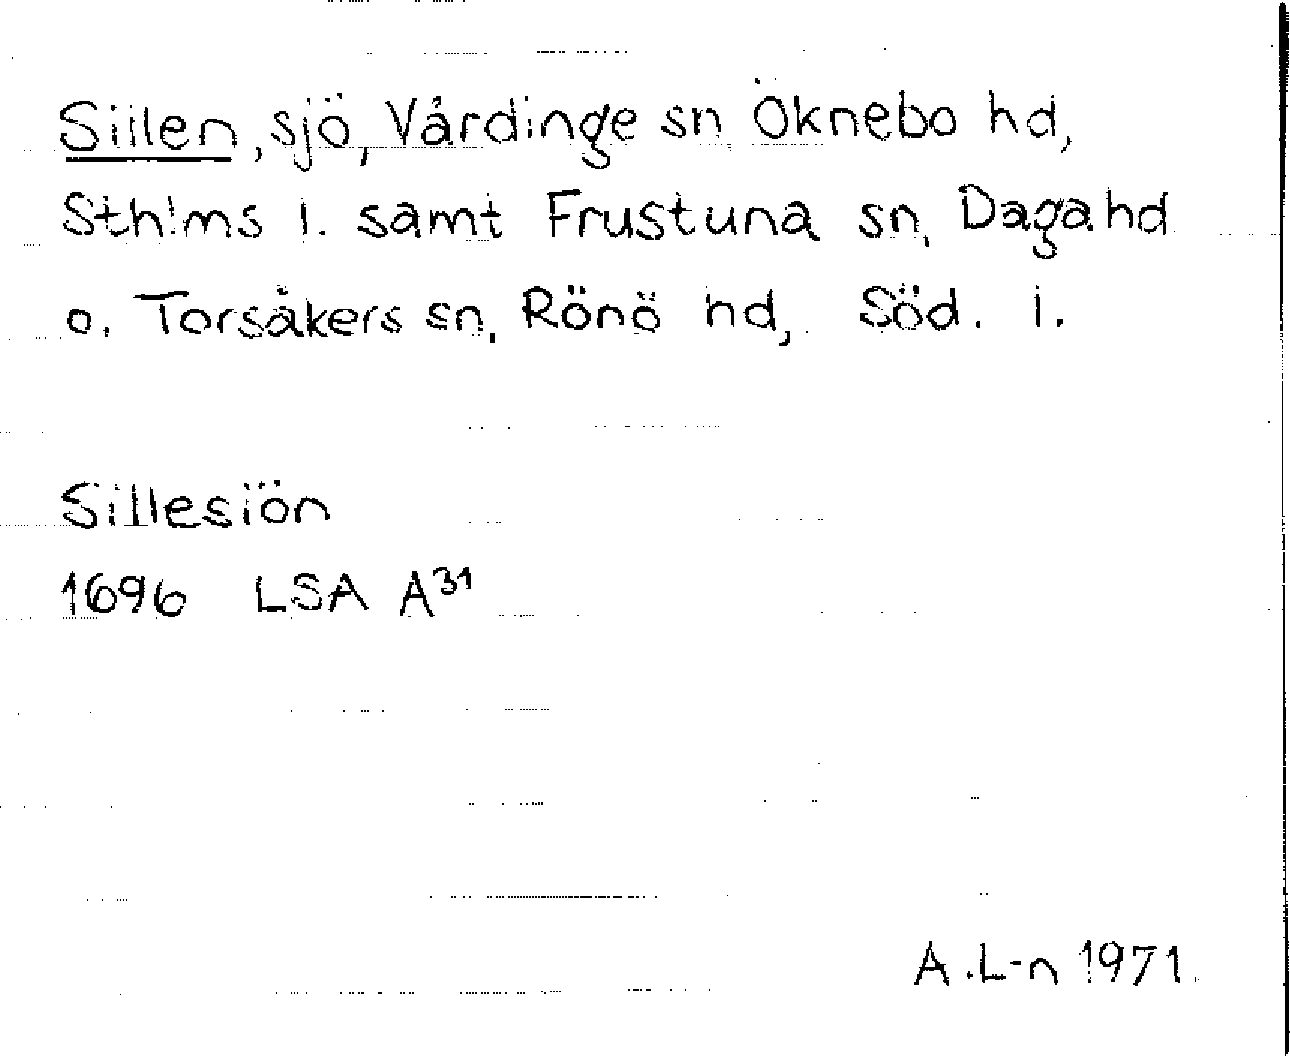 Sillen, sjö, Vårdinge sn, Öknebo hd,
Sthlms l. samt Frustuna sn, Daga hd
o. Torsåkers sn, Rönö hd, Söd. l.
Sillesiön
1696 LSA A31
A.L-n 1971.